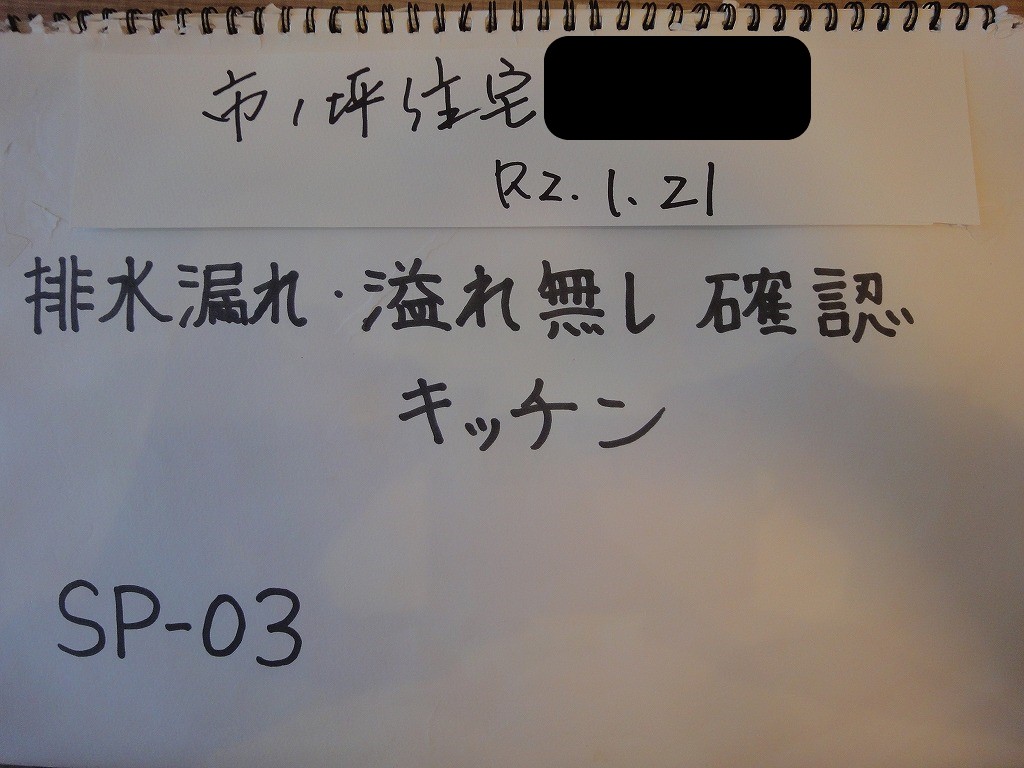 市ノ坪住宅
R2.1.21
排水漏れ・溢れ無し 確認
キッチン
SP-03